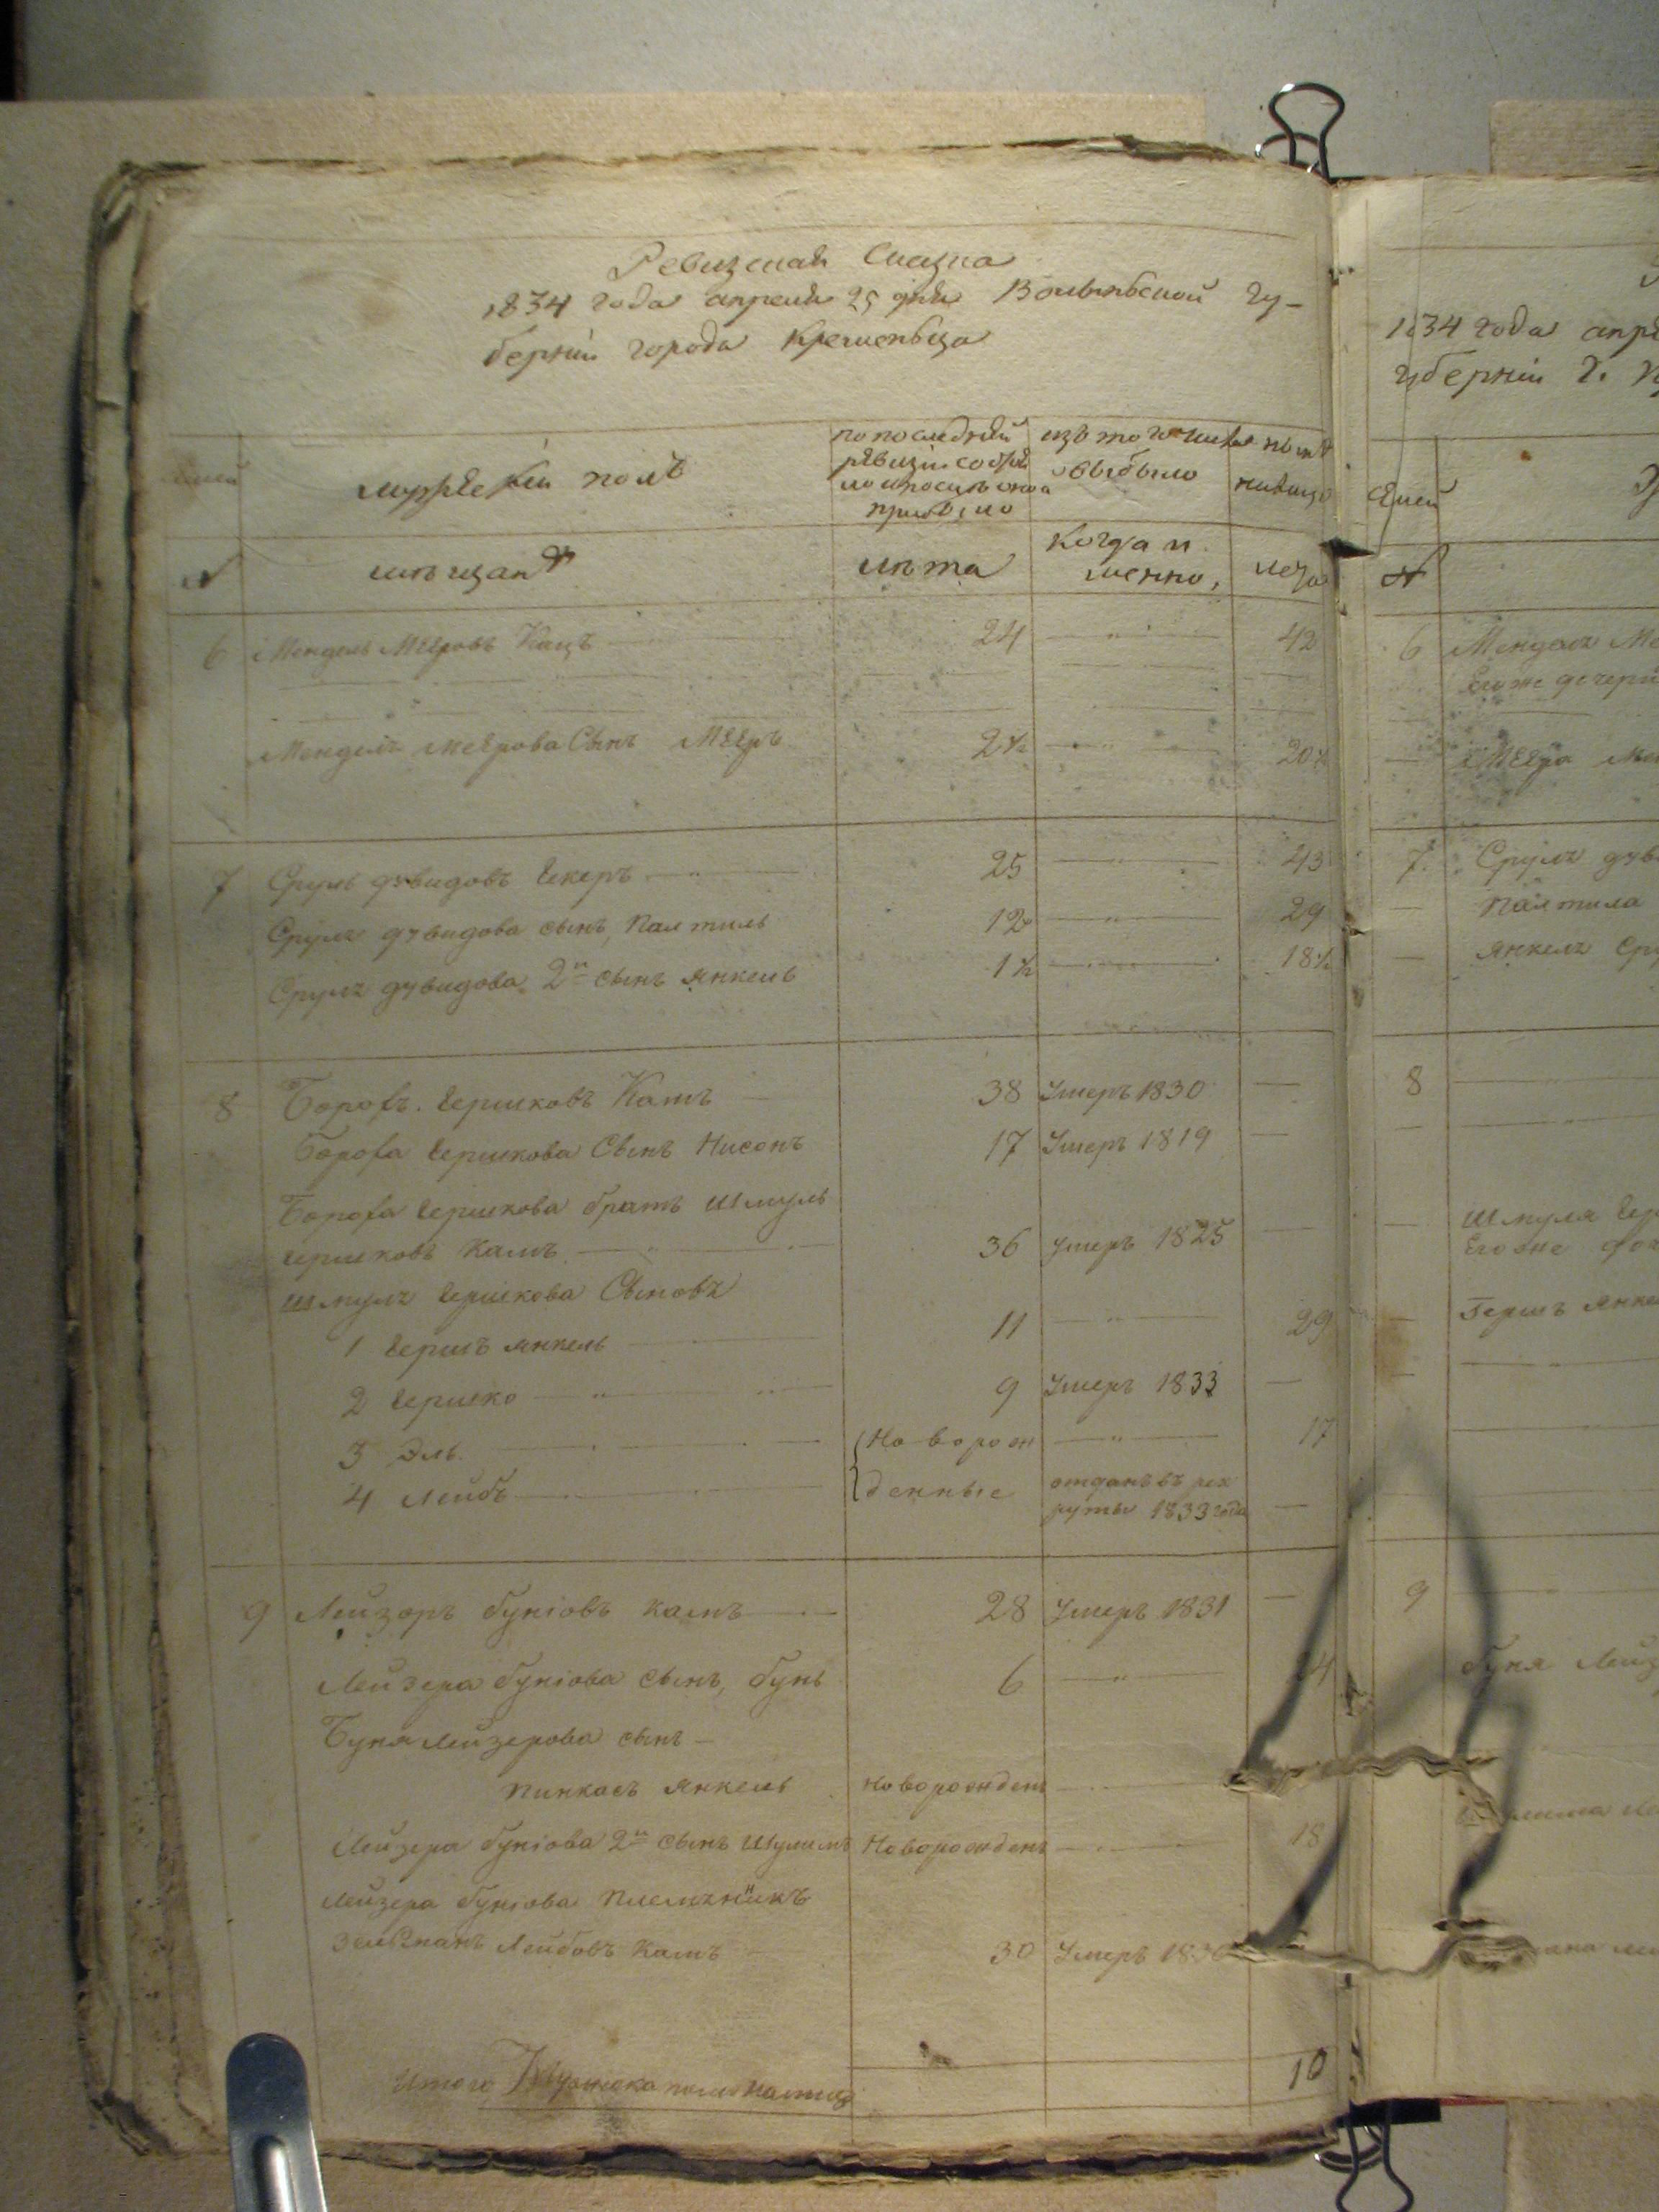 Ревизская Сказка
1834 года апреля 25 дня Волынской гу-
берніи города Кременьца
Семей
мужескій полъ
по последней
ревизіи состоя
ло и после оной
прибыло
изъ того числа
выбыло
ныне
на лицо
№
мещанъ
лета
когда и
менно,
лета
6 Мендель Мееровъ Кацъ 24 — " — 42
Менделя Меерова Сынъ Мееръ 2 ½ — " — 20 ½
7 Сруль дувидовъ Екеръ — " — 25 — " — 43
Сруля дувидова сынъ, Палтиль 12 — " — 29
Сруля дувидова 2й сынъ янкель 1 ½ — 18 ½
8 Борохъ Гершковъ Камъ — 38 Умеръ 1830 —
Бороха Гершкова Сынъ Нисонъ 17 Умеръ 1819 —
Бороха Гершкова братъ Шмуль
Гершковъ Камъ — " — 36 Умеръ 1825 —
Шмуля Гершкова Сыновя
1 Гершъ янкель — 11 — " — 29
2 Гершко — " — 9 Умеръ 1833 —
3 Эль — Но ворож — " — 17
4 Лейбъ — денные отданъ въ рек
руты 1833 года —
9 Лейзоръ буніовъ камъ — 28 Умеръ 1831 —
Лейзера буніова сынъ, бунь 6 — " — 24
Буня Лейзерова сынъ —
Пинкасъ янкель Новорожденъ —
Лейзера буніова 2й сынъ Шулимъ Новорожденъ — 18
Лейзера буніова племянникъ
Зельманъ Лейбовъ Камъ — 30 Умеръ 1830
Итого Мужеска пола налицо 10
1834 года апре
губерніи г. К
Семей
№
6 Менделя Ме
Его же дочери
— Меера Мен
7. Сруля дув
— Палтила
— янкеля Сру
8
— Шмуля Гер
Его же доч
— Гершъ янке
9
буня Лейз